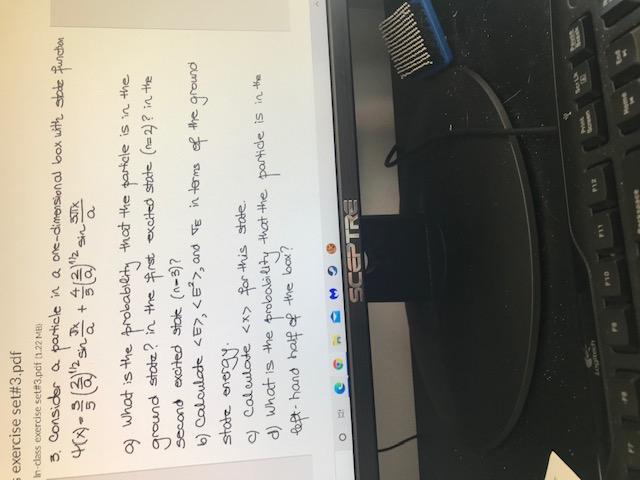 s exercise set#3.pdf
In-class exercise set#3.pdf (1.22 MB)
3. Consider a particle in a one-dimensional box with state function
ψ(x) = 3/5 (2/a)^1/2 sin πx/a + 4/5 (2/a)^1/2 sin 3πx/a
a) What is the probability that the particle is in the
ground state? in the first excited state (n=2)? in the
second excited state (n=3)?
b) Calculate <E>, <E²>, and σE in terms of the ground
state energy.
c) Calculate <x> for this state.
d) What is the probability that the particle is in the
left-hand half of the box?
SCEPTRE
Logitech
F7 F8 F9 F10 F11 F12
Print Screen
Scr Lk
Pause Break
Home
End